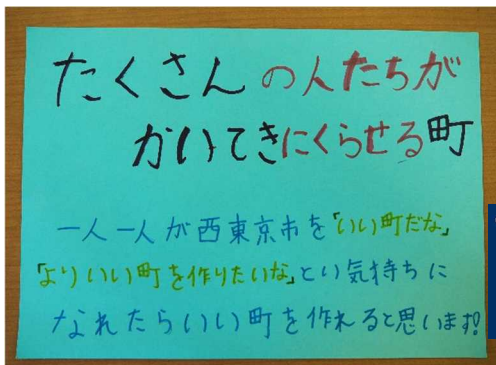 たくさんの人たちが
かいてきにくらせる町
一人一人が西東京市を「いい町だな」
「よりいい町を作りたいな」とい気持ちに
なれたらいい町を作れると思います!